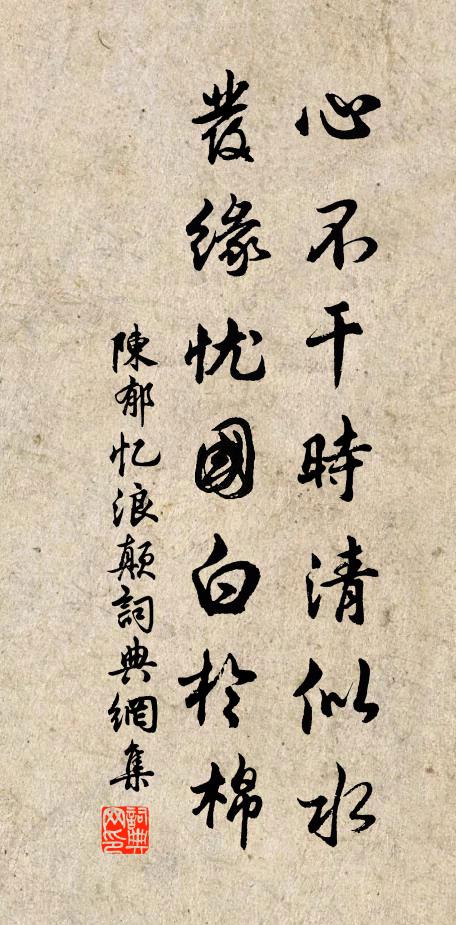 心不干時清似水
發緣忧國白於棉
陳郁忆浪顛詞典網集
詞典网印